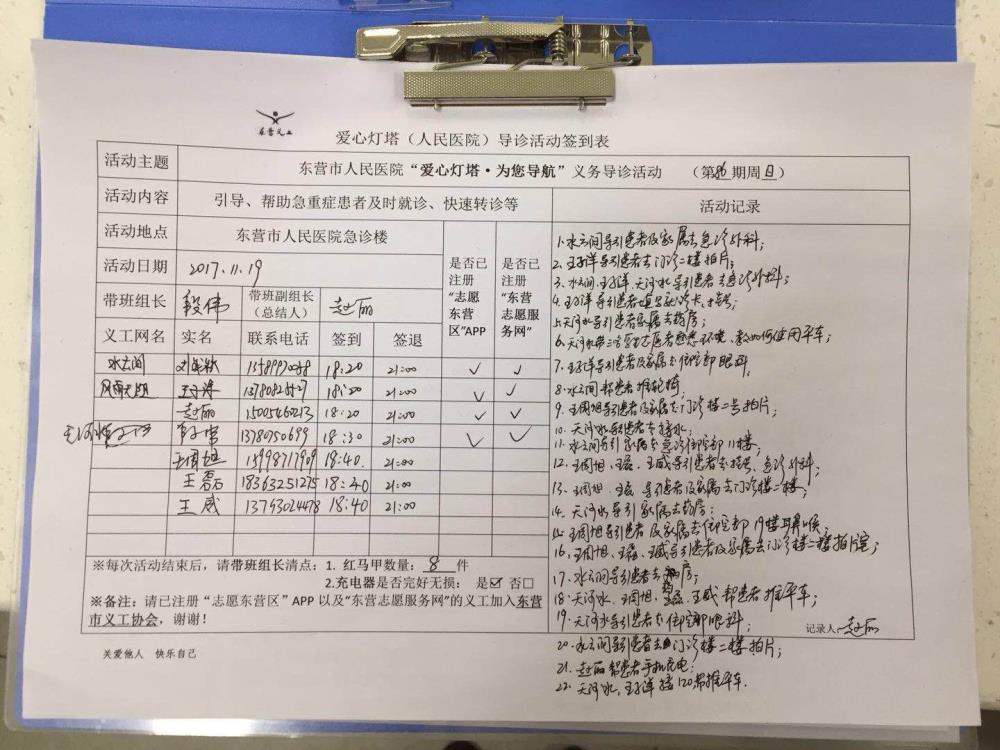 东营义工
爱心灯塔（人民医院）导诊活动签到表
活动主题 东营市人民医院“爱心灯塔·为您导航”义务导诊活动 （第86期周日）
活动内容 引导、帮助急重症患者及时就诊、快速转诊等 活动记录
活动地点 东营市人民医院急诊楼 是否已注册“志愿东营区”APP 是否已注册“东营志愿服务网”
活动日期 2017.11.19
带班组长 段伟 带班副组长（总结人） 赵丽
义工网名 实名 联系电话 签到 签退
水云间 18:20 21:00 ✓ ✓
18:20 21:00 ✓ ✓
赵丽 15005460213 18:20 21:00 ✓ ✓
13780750699 18:30 21:00 ✓ ✓
王周旭 15998717909 18:40. 21:00
王磊 18363251275 18:40 21:00
王威 13793024478 18:40 21:00
※每次活动结束后，请带班组长清点：1. 红马甲数量：8 件
2.充电器是否完好无损： 是☑ 否□
※备注：请已注册“志愿东营区”APP 以及“东营志愿服务网”的义工加入东营
市义工协会，谢谢！
1.水云间导引患者及家属去急诊外科；
2.王子洋导引患者去门诊二楼拍片；
3.水云间、王子洋、天河水导引患者去急诊外科；
4.王子洋导引患者填写就诊卡、挂号；
5.天河水导引患者家属去药房；
6.天河水带 志愿者熟悉环境、教如何使用平车；
7.王子洋导引患者及家属去住院部眼科；
8.水云间帮患者推轮椅；
9.王周旭导引患者及家属去门诊楼二号拍片；
10.天河水导引患者去接水；
11.水云间导引家属去急诊住院部11楼；
12.王周旭、王磊、王威导引患者去挂号、急诊外科；
13.王周旭、王磊导引患者及家属去门诊楼二楼；
14.天河水导引家属去药房；
15.王周旭导引患者及家属去住院部19楼耳鼻喉；
16.王周旭、王磊、王威导引患者及家属去门诊楼二楼拍片室；
17.水云间导引患者去药房；
18.天河水、王周旭、王磊、王威帮患者推平车；
19.天河水导引患者去住院部眼科；
记录人 赵丽
20.水云间导引患者去门诊楼二楼拍片；
21.赵丽帮患者手机充电；
22.天河水、王子洋接120帮推平车.
关爱他人 快乐自己